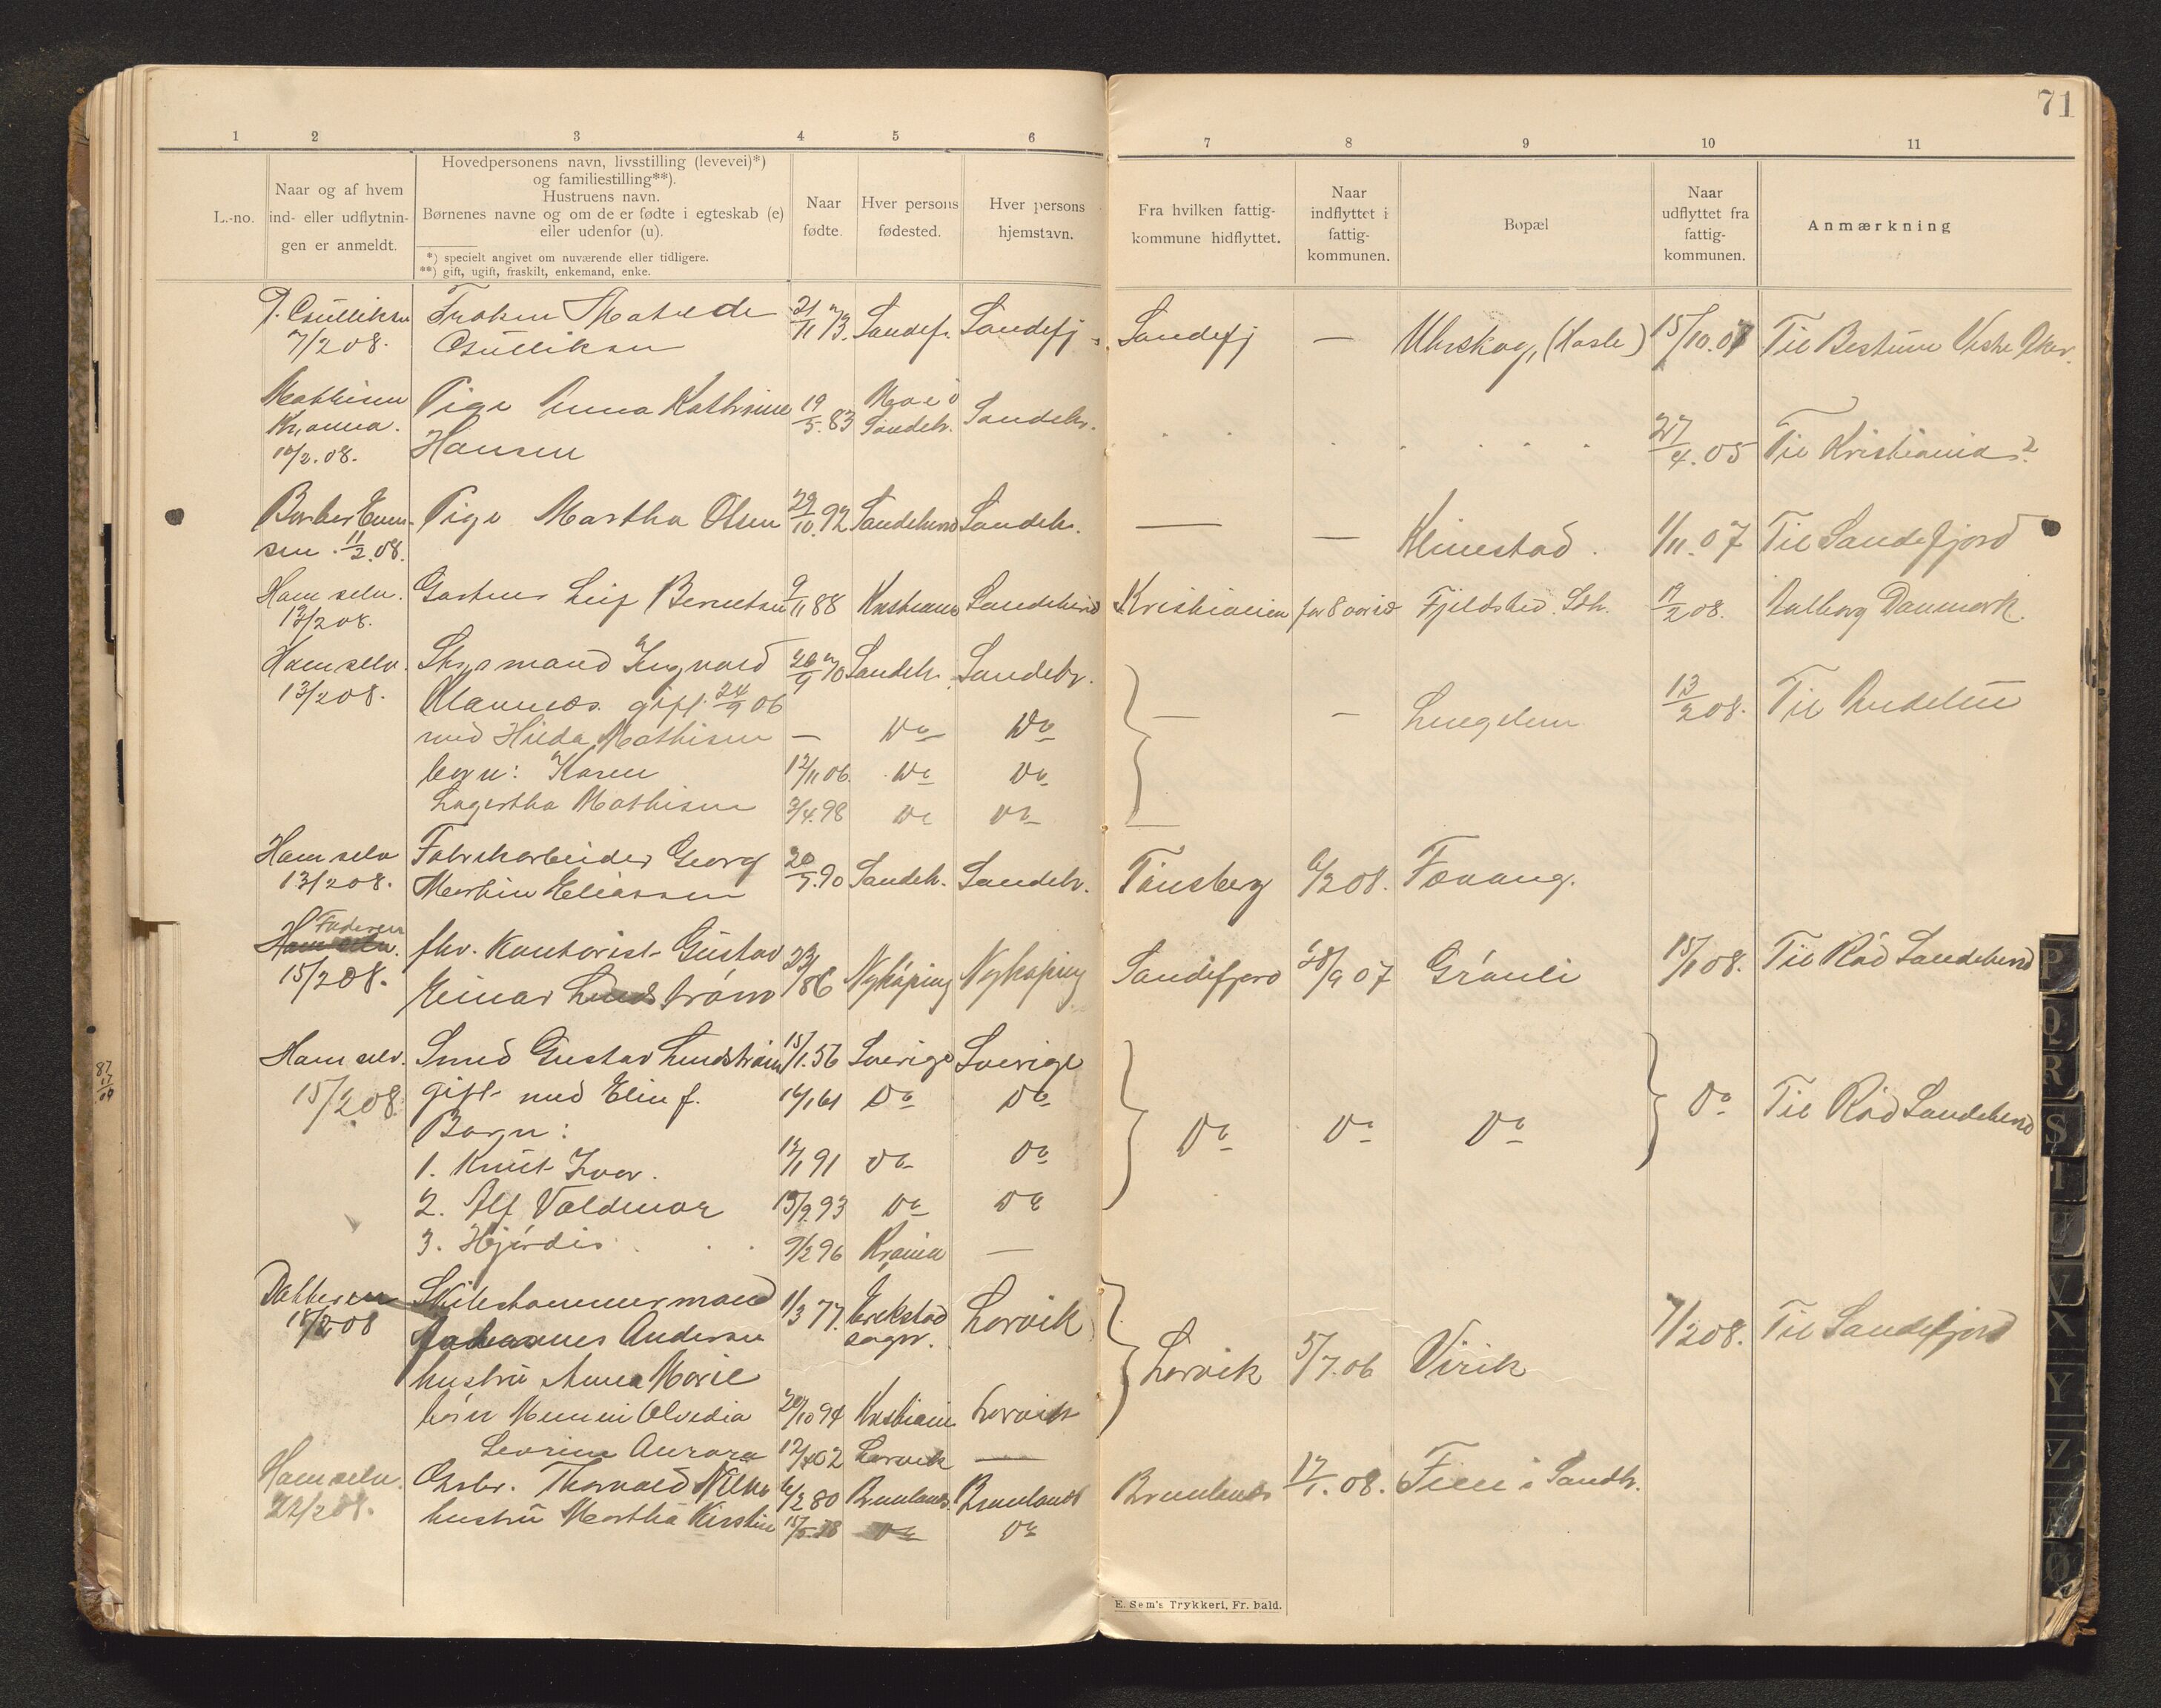 71
1 2 3 4 5 6 7 8 9 10 11
L.-no.
Naar og af hvem
ind- eller udflytnin-
gen er anmeldt.
Hovedpersonens navn, livsstilling (levevei)*)
og familiestilling**).
Hustruens navn.
Børnenes navne og om de er fødte i egteskab (e)
eller udenfor (u).
*) specielt angivet om nuværende eller tidligere.
**) gift, ugift, fraskilt, enkemand, enke.
Naar
fødte.
Hver persons
fødested.
Hver persons
hjemstavn.
Fra hvilken fattig-
kommune hidflyttet.
Naar
indflyttet i
fattig-
kommunen.
Bopæl
Naar
udflyttet fra
fattig-
kommunen.
Anmærkning
Frøken 21/11 73. Sandef. Sandefj Sandefj — (Hasle) 15/10.07 Til Bestum Vestre Aker.
7/2 08.
Mathisen Pige Anna Kathrine 19/5.83 Sandeh. Sandeh. 27/4.05 Til Kristiania?
Kr,ania. Hansen
10/2.08.
Pige Martha Olsen 29/10.92 Sandeherred Sandeh. — — Klinestad. 1/11.07 Til Sandefjord
11/2.08.
Ham selv. Gartner Leif Berntsen 9/11 88 Kristiania Sandeherred Kristiania for 8 aar sid Fjeldsted Sdh. 12/2 08. Aalborg Danmark.
13/2 08.
Ham selv. Ingvald 26/9 70 Sandeh. Sandeh. — — 13/2 08. Til
13/2 08. gift 24/9 06
med Hilda Mathisen — Do Do
børn: Karen 12/11 06. Do Do
Lagertha Mathisen 3/4.98 Do Do
Ham selv Fabrikarbeider Georg 20/5.90 Sandeh. Sandeh. Tønsberg 6/2 08. Fevang.
13/2 08. Martin Eliassen
Faderen
Ham selv. fhv. Kontorist Gustav Nykøping Nykøping Sandefjord 28/9 07 Granli 15/1 08. Til Rød Sandeherred
15/2 08. Einar Lundstrøm
Ham selv. Smed Gustav Lundstrøm 15/1.56 Sverige Sverige
15/2 08. gift med Elin f. 16/1 61 Do Do
Børn: Do Do Do Do Til Rød Sandeherred
1. Knut Ivar. 12/1 91 Do Do
2. Alf Valdemar 15/9.93 Do Do
3. Hjørdis 9/2 96 Krania —
Skibstømmermand 1/3 77. Larvik
18/2 08 Johannes Andersen sogn.
hustru Anna Marie Larvik 5/7.06 Virik 7/2 08. Til Sandefjord
børn 20/10 94 Kristiania Larvik
Aurora 12/4 02 Larvik —
Ham selv. Gbr. Thorvald 6/2 80 Brunlanes. Brunlanes Brunlanes 17/1.08. Fien i Sandh.
22/2 08. hustru Martha Kirstine Do Do
E. Sem's Trykkeri, Fr. hald.
87
17
09
P
Q
R
S
T
U
V
X
Y
Z
Æ
Ø